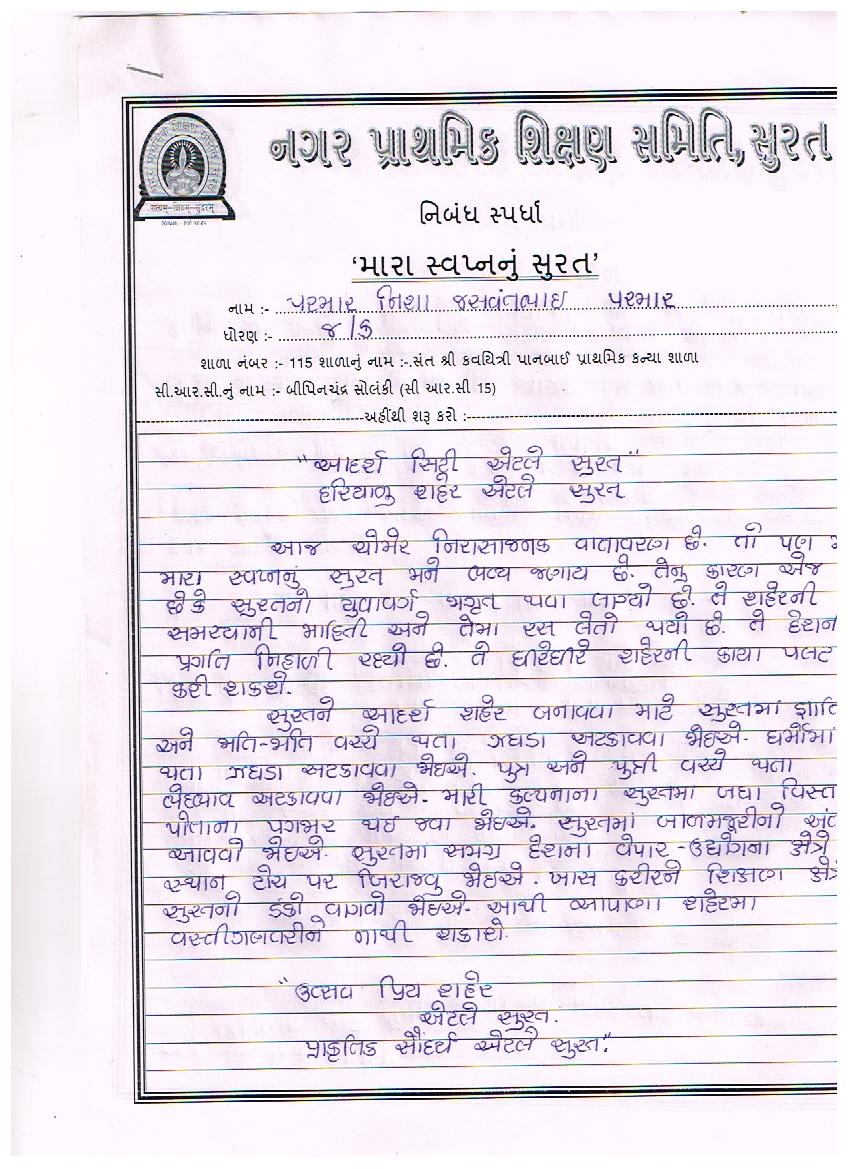 નગર પ્રાથમિક શિક્ષણ સમિતિ, સુરત
સત્યમ્-શિવમ્-સુંદરમ્
નિબંધ સ્પર્ધા
‘મારા સ્વપ્નનું સુરત’
નામ :- પરમાર નિશા જસવંતભાઇ પરમાર
ધોરણ :- ૪/ક
શાળા નંબર :- 115 શાળાનું નામ :-.સંત શ્રી કવયિત્રી પાનબાઈ પ્રાથમિક કન્યા શાળા
સી.આર.સી.નું નામ :- બીપિનચંદ્ર સોલંકી (સી આર.સી 15)
અહીંથી શરૂ કરો :-
"આદર્શ સિટી એટલે સુરત"
હરિયાળુ શહેર એટલે સુરત
આજ ચોમેર નિરાસાજનક વાતાવરણ છે. તો પણ
મારા સ્વપ્નનું સુરત મને ભવ્ય જણાય છે. તેનુ કારણ એજ
છેકે સુરતનો યુવાવર્ગ જાગૃત થવા લાગ્યો છે. તે શહેરની
સમસ્યાની માહિતી અને તેમા રસ લેતો થયો છે. તે દેશની
પ્રગતિ નિહાળી રહ્યો છે. તે ધીરેધીરે શહેરની કાયા પલટ
કરી શકશે.
સુરતને આદર્શ શહેર બનાવવા માટે સુરતમાં જ્ઞાતિ
અને જાતિ-જાતિ વચ્ચે થતા ઝઘડા અટકાવવા જોઇએ. ધર્મોમાં
થતા ઝઘડા અટકાવવા જોઇએ. પુત્ર અને પુત્રી વચ્ચે થતા
ભેદભાવ અટકાવવા જોઇએ. મારી કલ્પનાના સુરતમા બધા
પોતાના પગભર થઇ જવા જોઇએ. સુરતમાં બાળમજૂરીનો
આવવો જોઇએ. સુરતમા સમગ્ર દેશના વેપાર-ઉદ્યોગના ક્ષેત્રે
સ્થાન ટોચ પર બિરાજવુ જોઇએ. ખાસ કરીને શિક્ષણ
સુરતનો ડંકો વાગવો જોઇએ. આથી આપાણા શહેરમા
નાથી શકાશે.
"ઉત્સવ પ્રિય શહેર
એટલે સુરત.
પ્રાકૃતિક સૌંદર્ય એટલે સુરત."